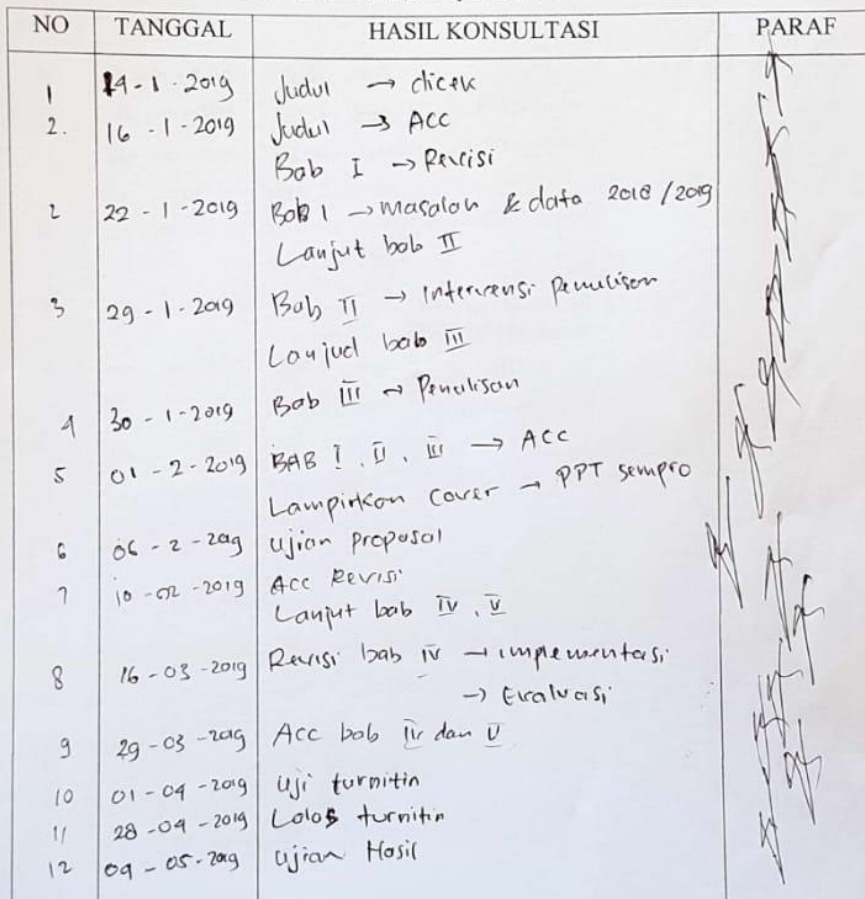 NO TANGGAL HASIL KONSULTASI PARAF
1 14-1-2019 Judul → dicek
2. 16-1-2019 Judul → ACC
Bab I → Revisi
2 22-1-2019 Bab 1 → masalah & data 2018/2019
Lanjut bab II
3 29-1-2019 Bab II → Intervensi penulisan
Lanjud bab III
4 30-1-2019 Bab III → Penulisan
5 01-2-2019 BAB I, II, III → ACC
Lampirkan cover → PPT sempro
6 06-2-2019 Ujian proposal
7 10-02-2019 Acc Revisi
Lanjut bab IV, V
8 16-03-2019 Revisi bab IV → implementasi
→ Evaluasi
9 29-03-2019 Acc bab IV dan V
10 01-04-2019 Uji turnitin
11 28-04-2019 Lolos turnitin
12 09-05-2019 Ujian Hasil